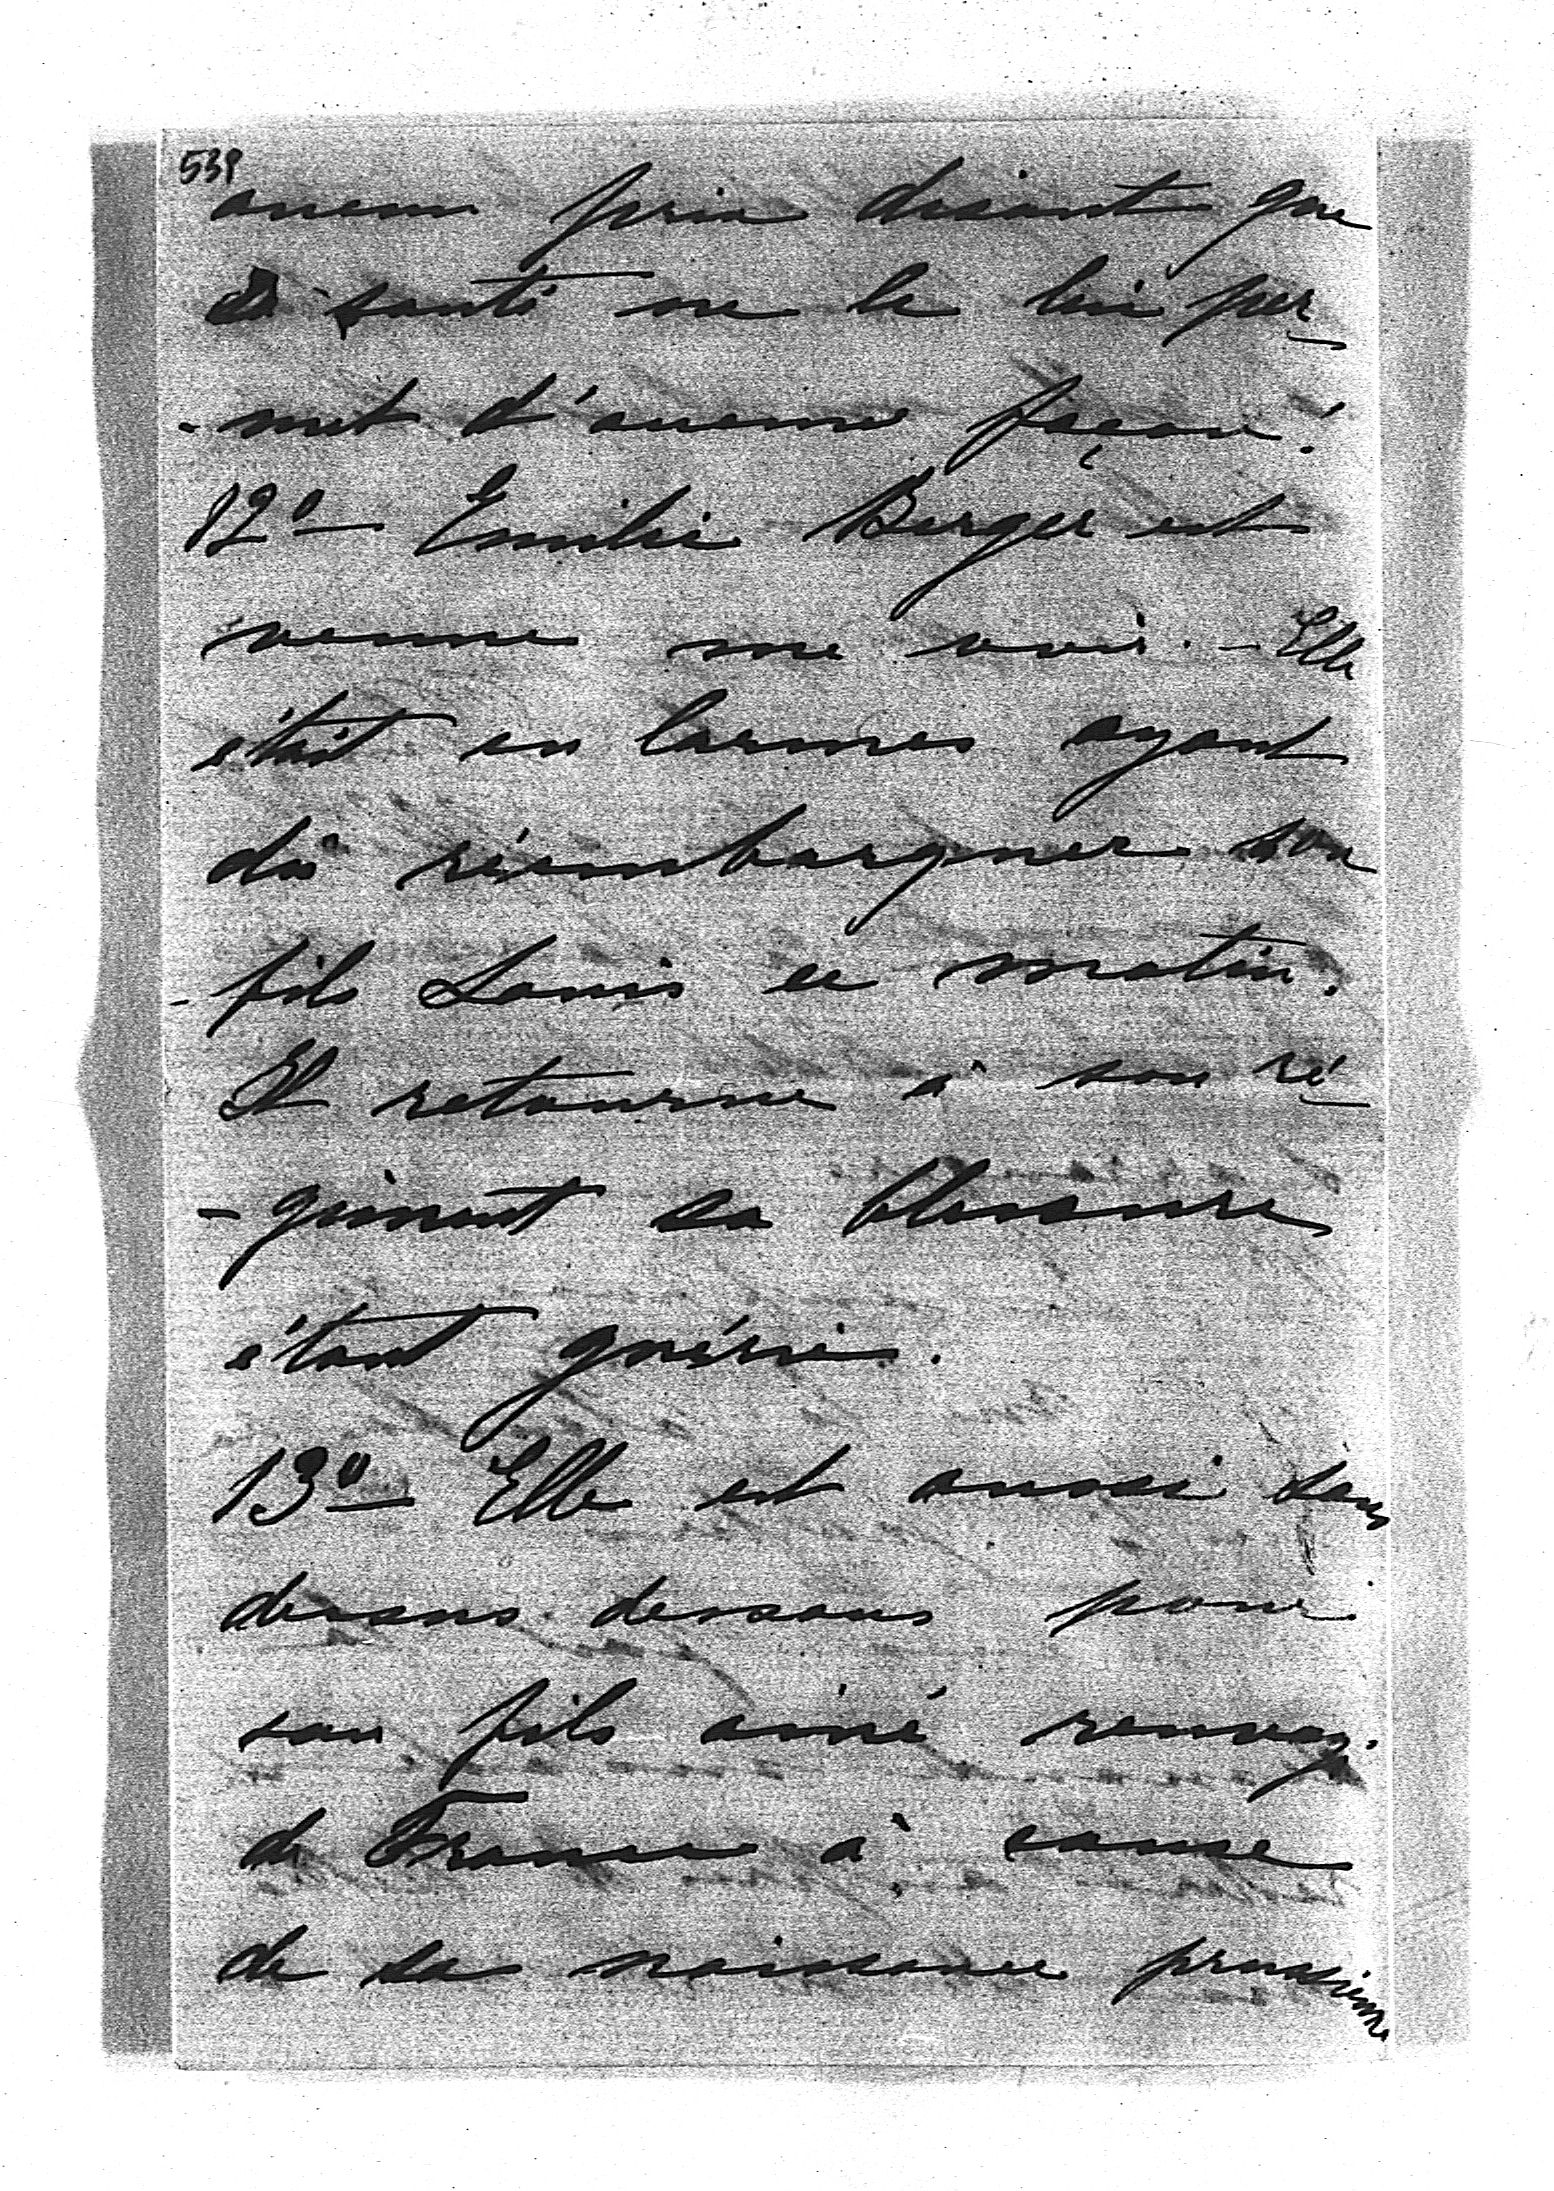 539
aucun prix disant que
sa santé ne le lui per
-met d'aucune façon!
12° Emilie Berger est
venue me voir. - Elle
était en larmes ayant
dû réembarquer son
- fils Louis ce matin.
Il retourne à son ré
-giment sa blessure
étant guérie.
13° Elle est aussi sens
dessus dessous pour
son fils ainé renvoy.
de France à cause
de sa naissance prussienne